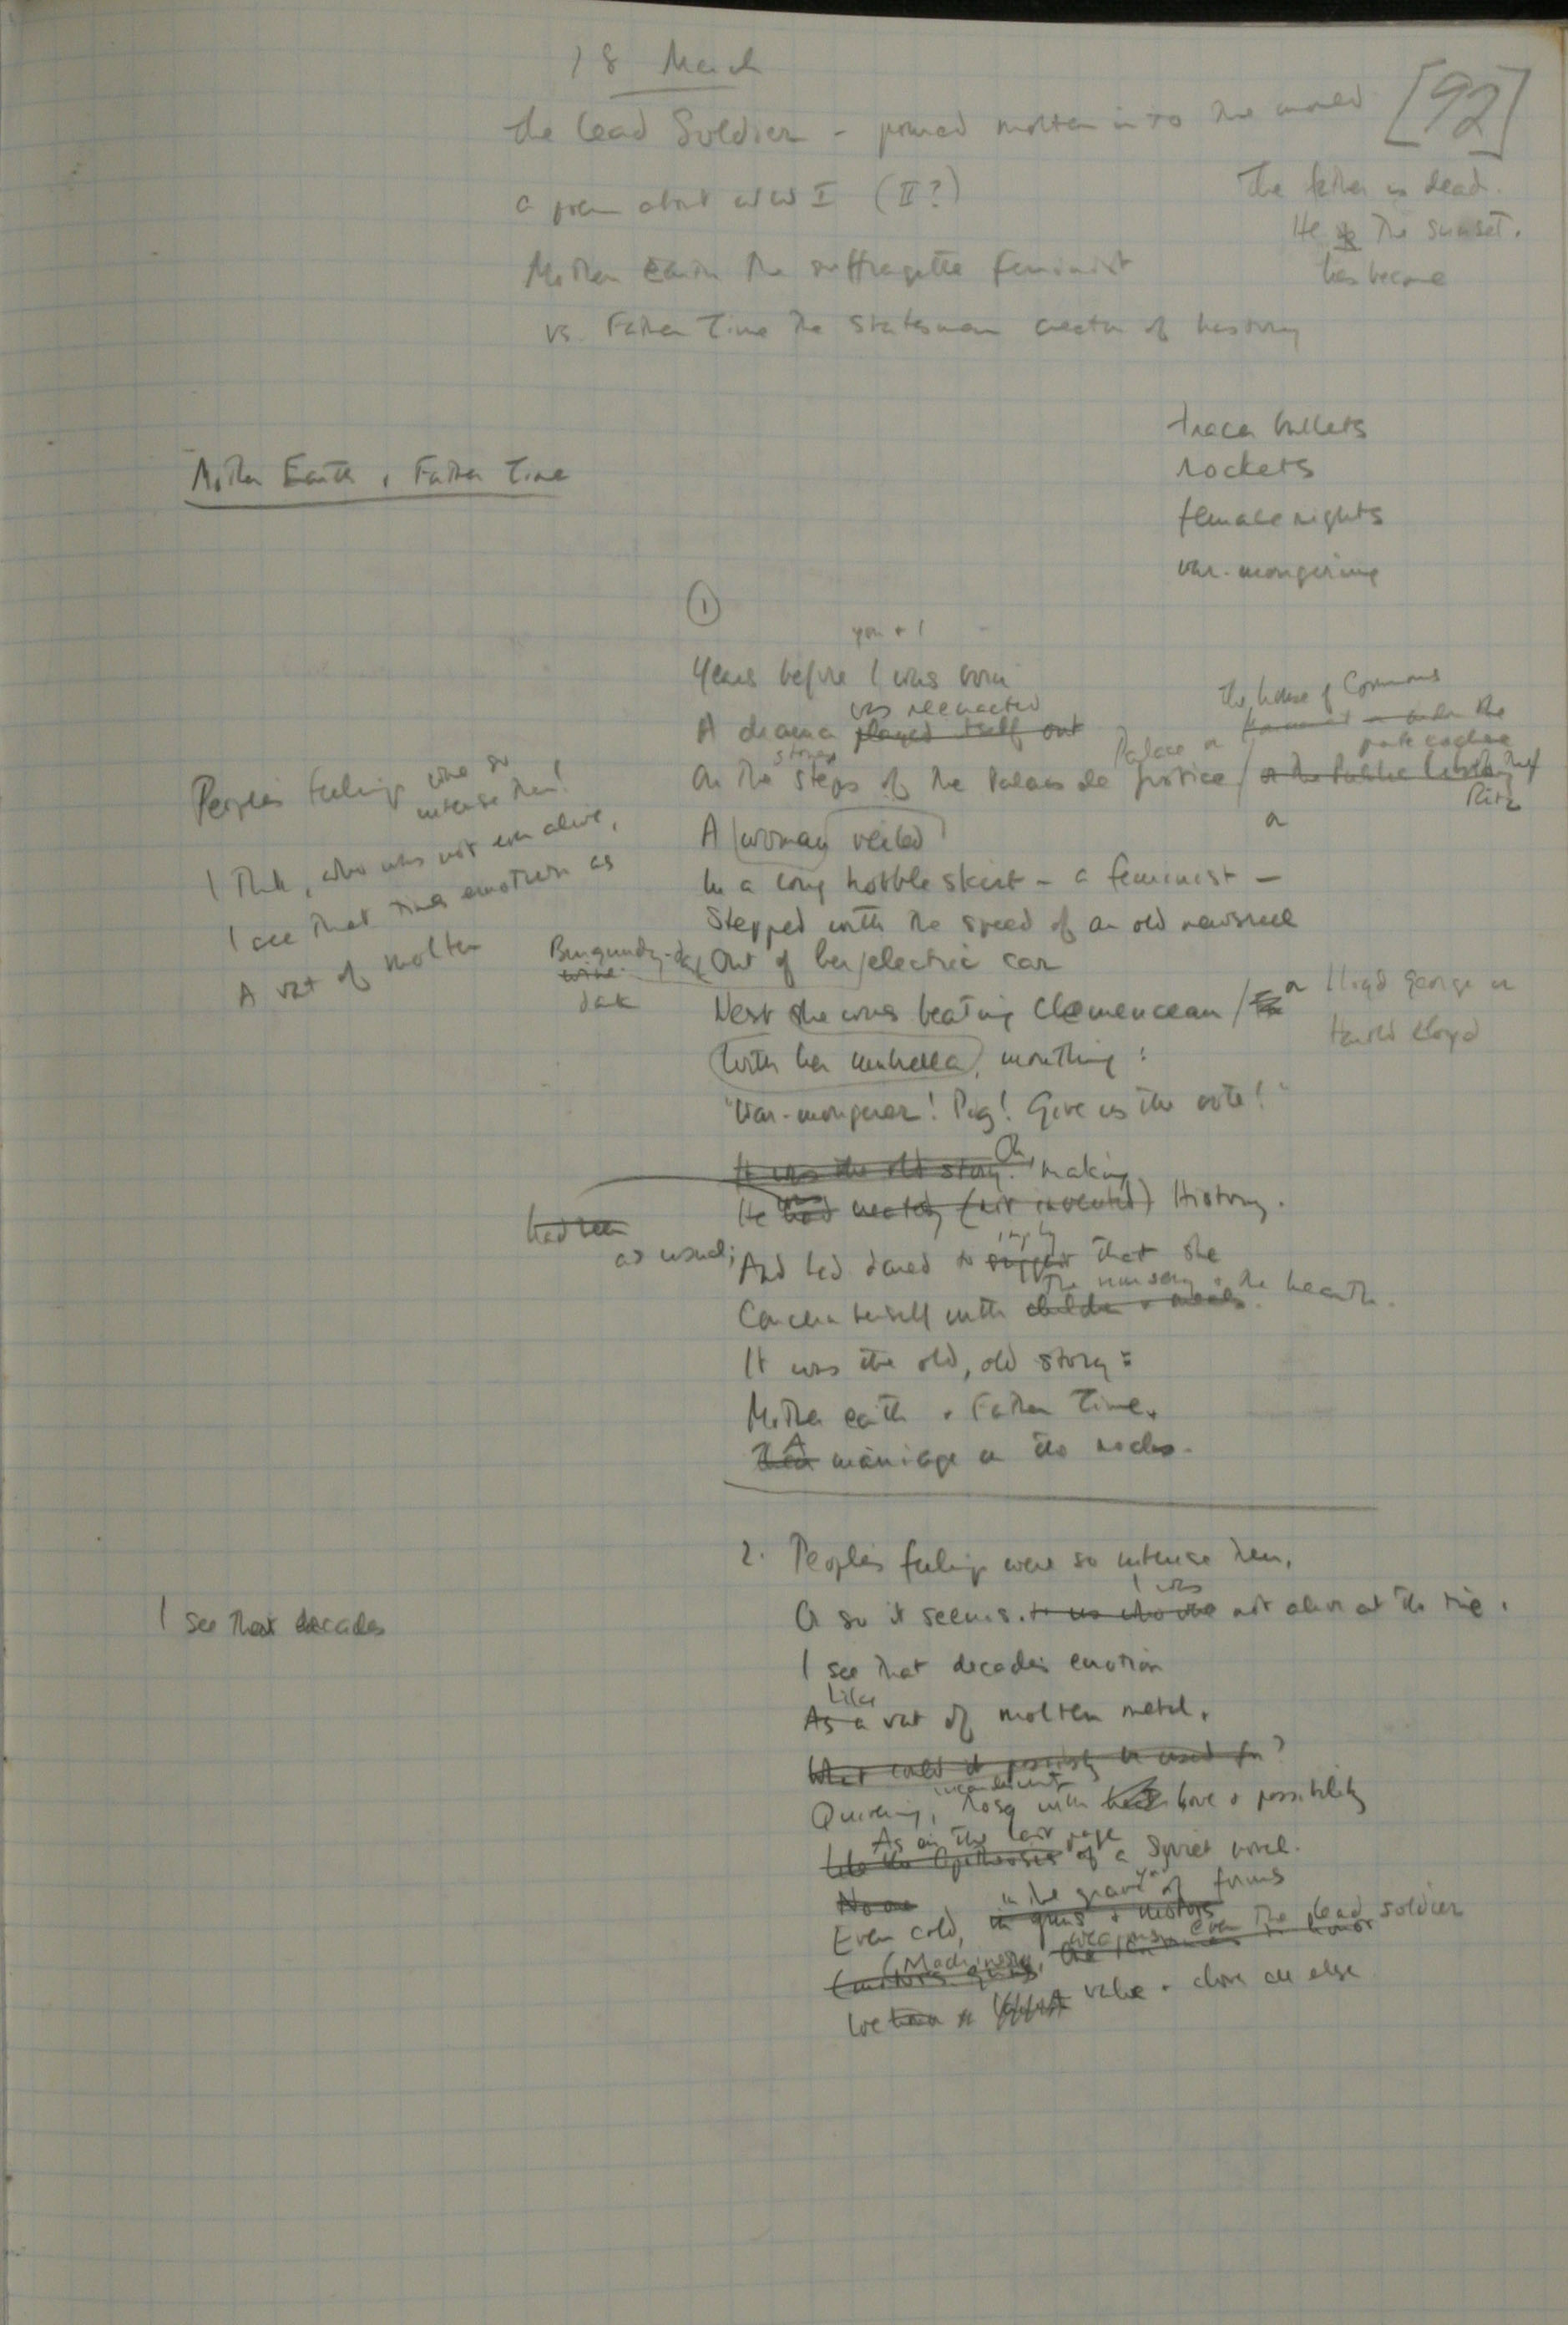 18 March
[92]
The lead Soldier - poured molten into the mold
a poem about WW I (II?)
The father is dead.
He is the sunset.
has become
Mother Earth the suffragette feminist
vs. Father Time the statesman creator of history
tracer bullets
rockets
female rights
war-mongering
Mother Earth + Father Time
①
you + I
Years before I was born
was reenacted
A drama played itself out
The House of Commons
stones
On the steps of the Palais de Justice /
Palace or
porte cochère
Ritz
or
A woman veiled
In a long hobble skirt - a feminist -
Stepped with the speed of an old newsreel
Out of her electric car
Burgundy-dark
wine
dark
Next she was beating Clemenceau / or
Lloyd George or
Harold Lloyd
With her umbrella, mouthing:
"War-monger! Pig! Give us the vote!"
It was the old story. Oh,
making
He had created (not invented) History.
was
had been
as usual;
And had dared to suggest that she
imply
the nursery + the hearth.
Concern herself with children + meals.
It was the old, old story:
Mother earth + Father Time.
A
Their marriage on the rocks.
People's feelings were so
intense then!
I think, who was not even alive,
I see that time's emotion as
A vat of molten
2. People's feelings were so intense then,
I was
Or so it seems. to us who were not alive at the time.
I see that decades
I see that decade's emotion
Like
As a vat of molten metal.
What could it possibly be used for?
incandescent
Quivering, rosy with love + possibility
As on the last page
Like the apotheosis of a Soviet novel.
No one
in the graveyard of forms
Even cold, in guns + motors
(Machinery, weapons, even the lead soldier
(motors, guns,
We value + above all else